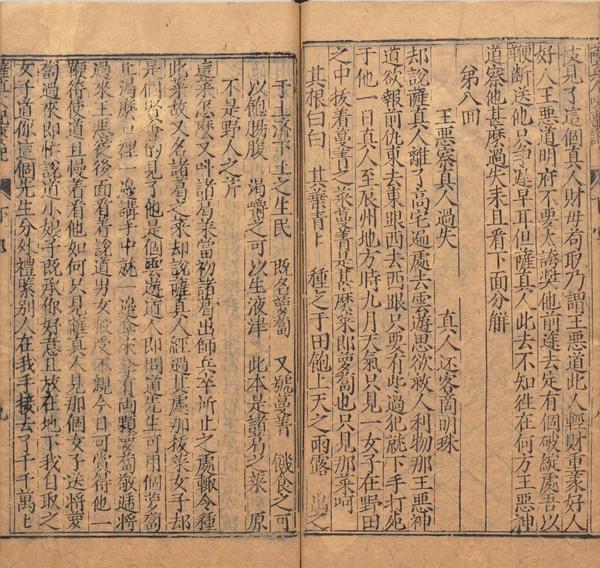 枝見了這個真人財毋茍取乃謂王悪道此人輕財重義好人
好人王悪道明府不要太誇奨他前途去定有個破綻處吾以
鞭斷送他只爭遲早耳但薩真人此去不知徃在何方王悪神
道察他甚麼過失耒且看下面分觧
第八回
王悪察真人過失
真人还客商明珠
却說薩真人離了高宅遍處去雲遊思欲救人利物那王悪神
道欲報前仇東去東跟西去西跟只要看些過犯就下手打死
于他一日真人至辰州地方時九月天氣只見一女子在野田
之中拔着蔓菁之菜蔓菁是甚麽菜即蘿蔔也只見那菜呵
其根曰曰 其葉青上 種之于田飽上天之雨露 出之
于土済下土之生民 既名蘿蔔 又號蔓菁 餓食之可
以飽膓腹 渴嚼之可以生液津 此本是諸葛之菜 原
不是野人之芹
這菜怎麼又叫諸葛菜當初諸葛出師兵卒所止之處輙令種
此菜故又名諸葛之菜却說薩真人經過其處那拔菜女子却
是個賢惠的見了他是個雲遊道人即問道先生可用個蘿蔔
止渴麽口裡一邉講手中就一邉拿
過來王悪從後面看看說道男女授受不親今日可賞得他一
鞭待使道且慢着看他如何只見薩真人見那個女子送將蘿
蔔過來即忙說道小娘子既承你好意且放在地下我自取之
女子道你這個先生分外禮緊别人在我手接去了千千萬上